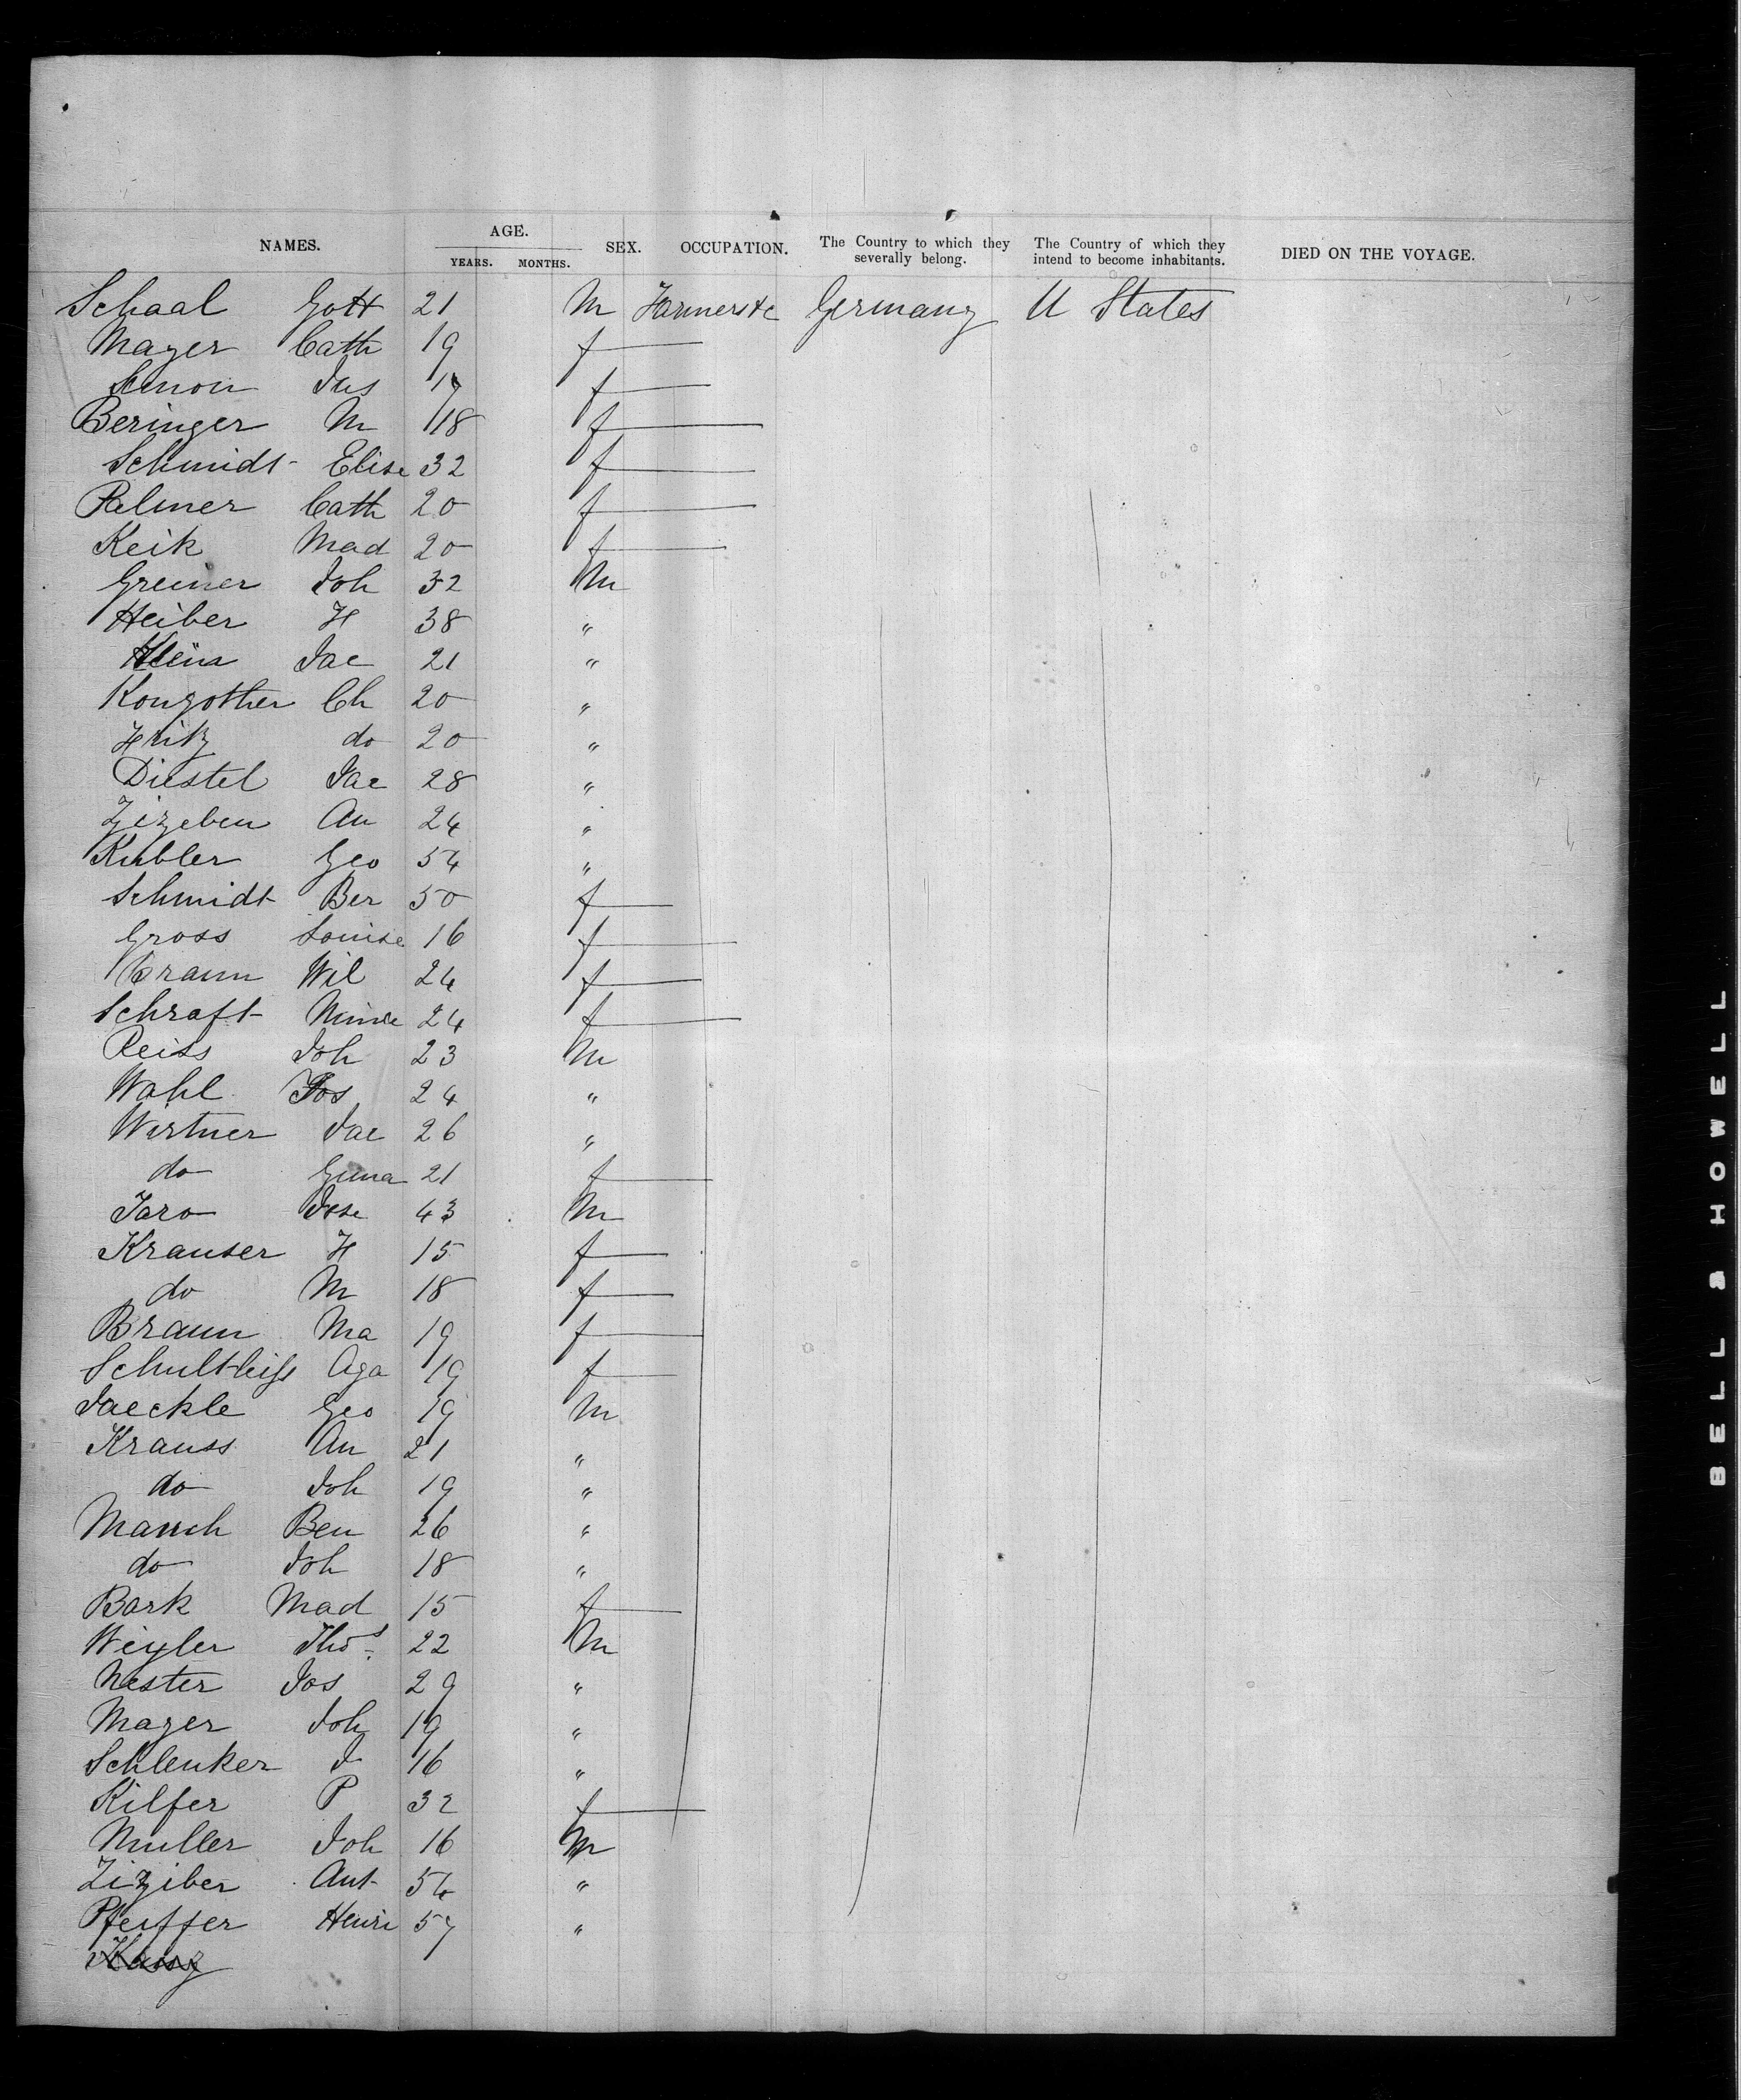 NAMES. AGE. YEARS. MONTHS. SEX. OCCUPATION. The Country to which they severally belong. The Country of which they intend to become inhabitants. DIED ON THE VOYAGE.
Schaal Gott 21 M Farmers &c Germany U States
Mayer Cath 19 f
Simon Jus f
Beringer M 18 f
Schmidt Elise 32 f
Palmer Cath 20 f
Keik Mad 20 f
Greiner Joh 32 M
Heiber H 38 "
Jac 21 "
Kongother Ch 20 "
Fritz do 20 "
Diestel Jac 28 "
Zizeben An 24 "
Kubler Geo 54 "
Schmidt Ber 50 f
Gross Louise 16 f
Braun Wil 24 f
Schraft Minie 24 f
Reiss Joh 23 M
Wahl Jos 24 "
Wirtner Jac 26 "
do 21 f
Jaro Jose 43 M
Krauser H 15 f
do M 18 f
Braun Ma 19 f
Schultheiss Aga 19 f
Jaeckle Geo 19 M
Krauss An 21 "
do Joh 19 "
Mauch Ben 26 "
do Joh 18 "
Bark Mad 15 f
Weyler Thos 22 M
Nester Jos 29 "
Mayer Joh 19 "
Schlenker J 16 "
Kilfer P 32 f
Muller Joh 16 M
Ziziber Ant 54 "
Pfeiffer Henri 57 "
BELL & HOWELL